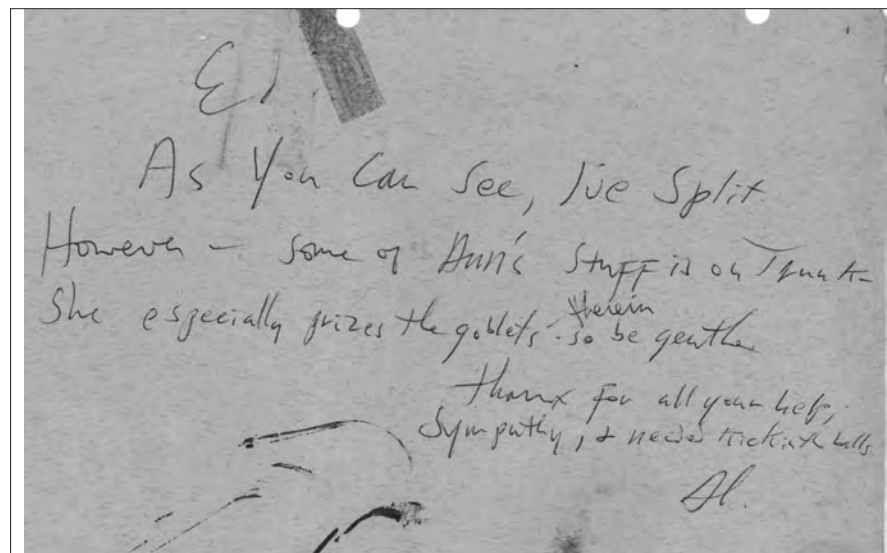 Ed.
As You Can See, I've Split.
However – some of Ann's Stuff is on Trunk –
She especially prizes the goblets – therein so be gentle
thanx for all your help,
Sympathy, & needed kick in the balls
Al.